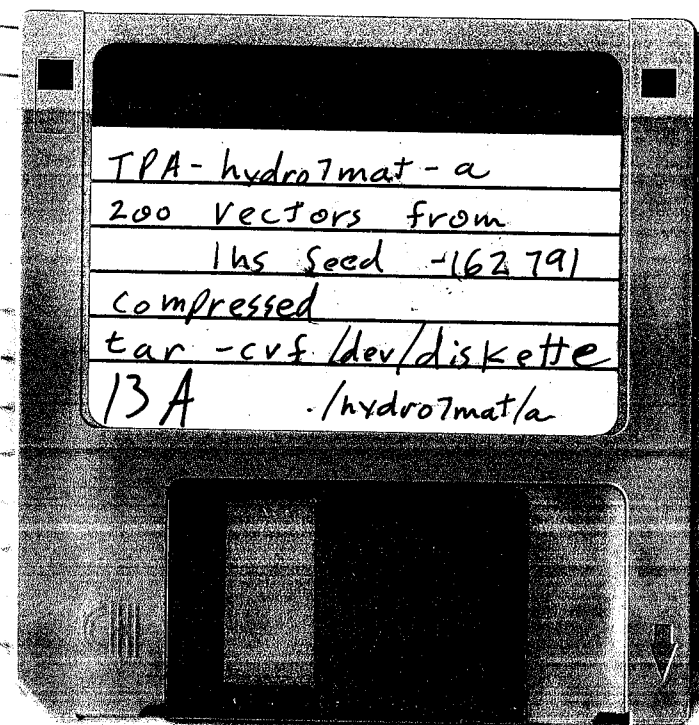 TPA-hydro7mat-a
200 Vectors from
lhs Seed -162791
compressed
tar -cvf /dev/diskette
13A ./hydro7mat/a